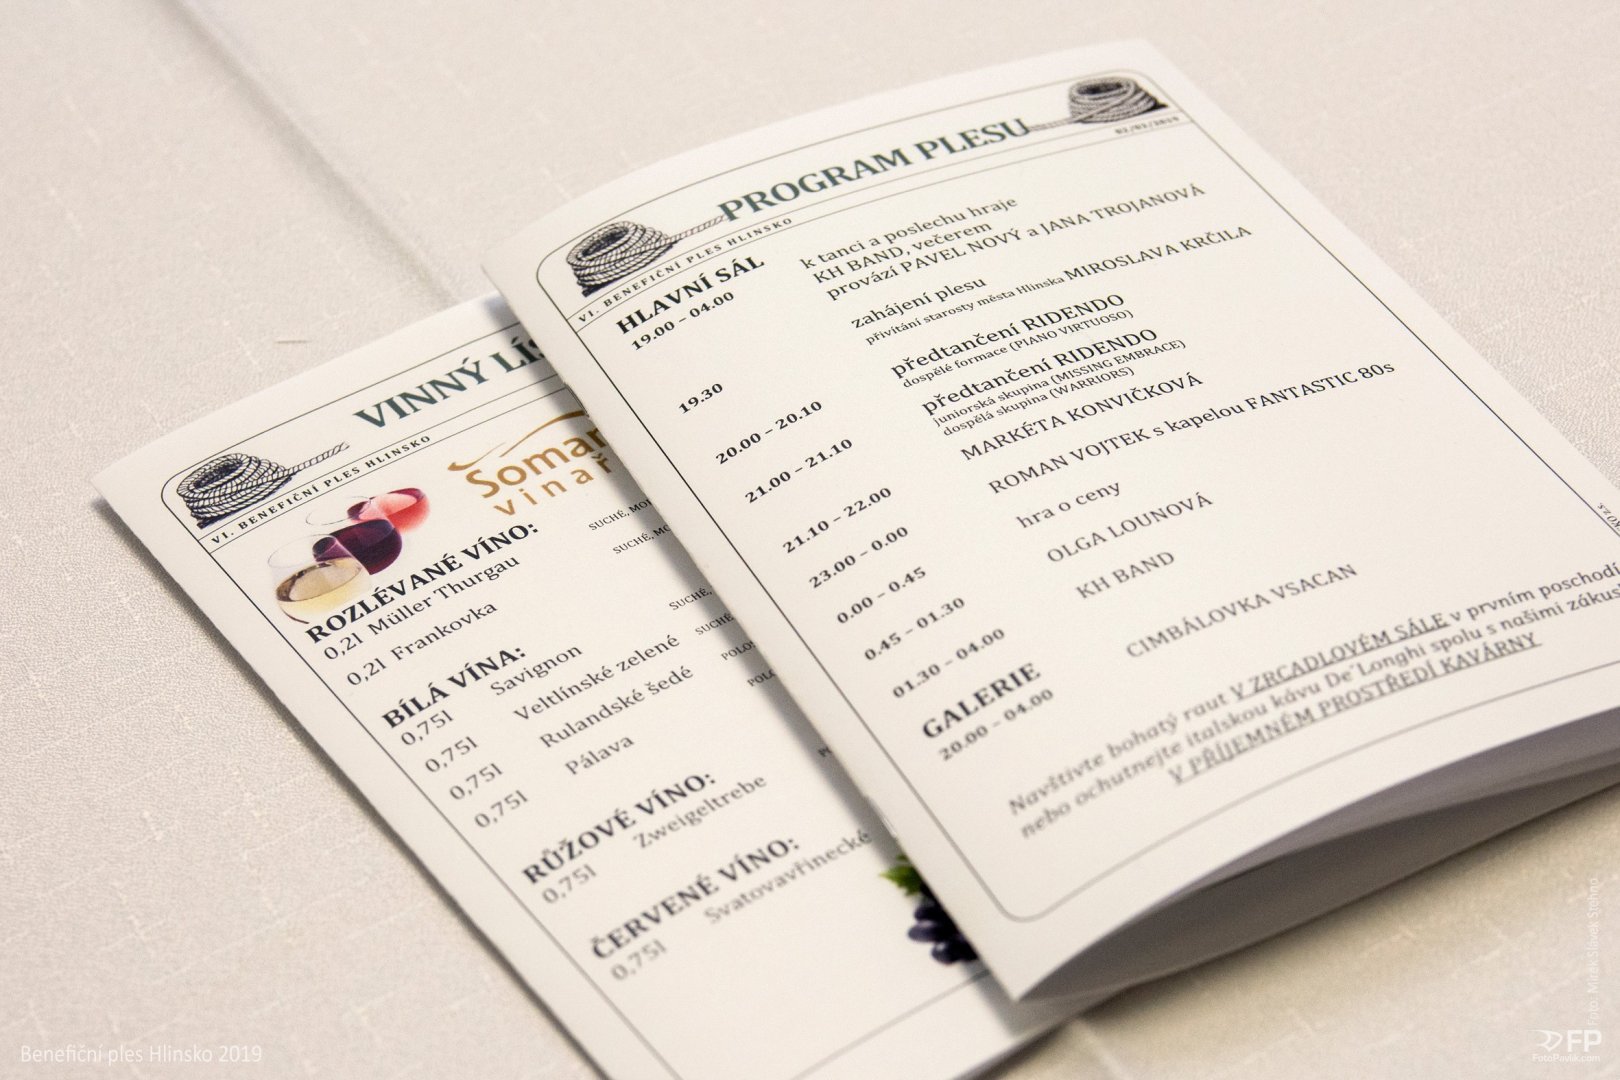 PROGRAM PLESU
02/02/2019
VI. BENEFIČNÍ PLES HLINSKO
HLAVNÍ SÁL
19.00 – 04.00
k tanci a poslechu hraje
KH BAND, večerem
provází PAVEL NOVÝ a JANA TROJANOVÁ
19.30
zahájení plesu
přivítání starosty města Hlinska MIROSLAVA KRČILA
20.00 – 20.10
předtančení RIDENDO
dospělé formace (PIANO VIRTUOSO)
21.00 – 21.10
předtančení RIDENDO
juniorská skupina (MISSING EMBRACE)
dospělá skupina (WARRIORS)
21.10 – 22.00
MARKÉTA KONVIČKOVÁ
23.00 – 0.00
ROMAN VOJTEK s kapelou FANTASTIC 80s
0.00 – 0.45
hra o ceny
0.45 – 01.30
OLGA LOUNOVÁ
01.30 – 04.00
KH BAND
GALERIE
20.00 – 04.00
CIMBÁLOVKA VSACAN
Navštivte bohatý raut V ZRCADLOVÉM SÁLE v prvním poschodí
nebo ochutnejte italskou kávu De´Longhi spolu s našimi
V PŘÍJEMNÉM PROSTŘEDÍ KAVÁRNY
VINNÝ
VI. BENEFIČNÍ PLES HLINSKO
ROZLÉVANÉ VÍNO:
0,2l Müller Thurgau
SUCHÉ,
0,2l Frankovka
SUCHÉ,
BÍLÁ VÍNA:
0,75l Savignon
SUCHÉ,
0,75l Veltlínské zelené
SUCHÉ
0,75l Rulandské šedé
0,75l Pálava
RŮŽOVÉ VÍNO:
0,75l Zweigeltrebe
ČERVENÉ VÍNO:
0,75l Svatovavřinecké
Benefiční ples Hlinsko 2019
FP
FotoPavlik.com